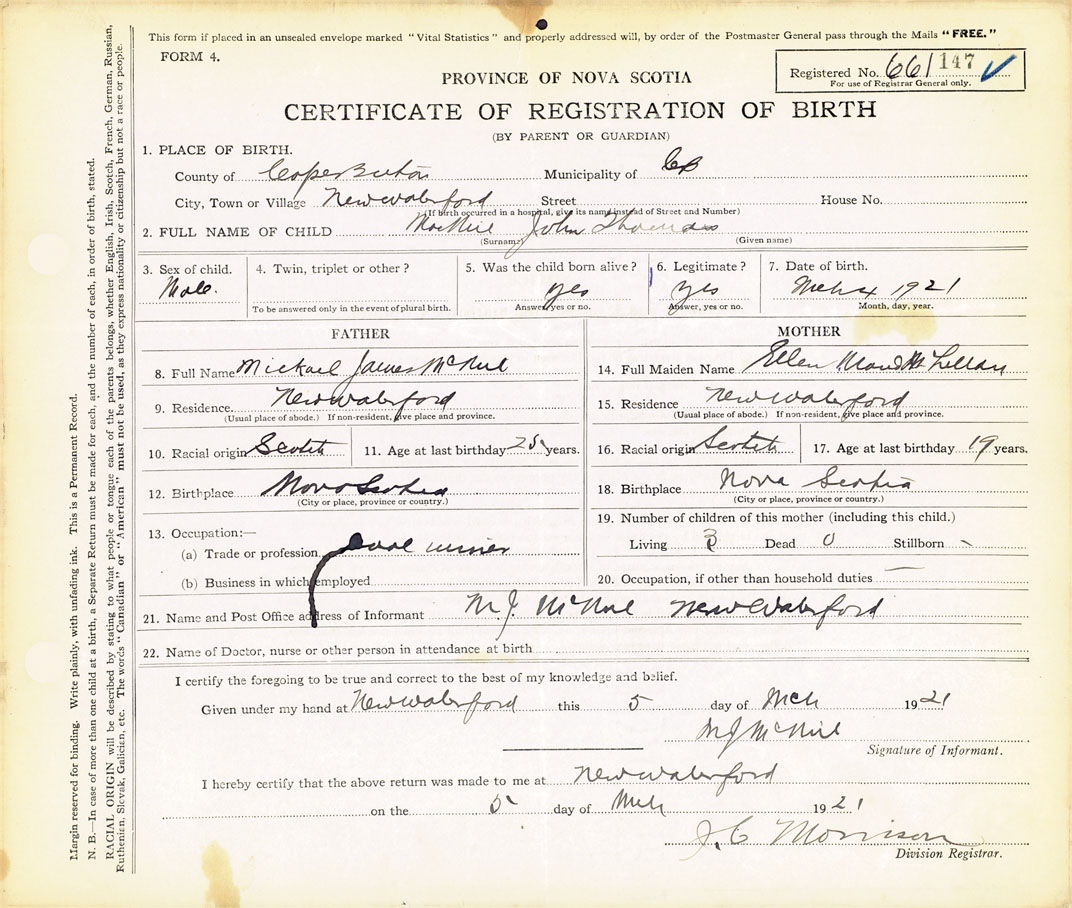 This form if placed in an unsealed envelope marked "Vital Statistics" and properly addressed will, by order of the Postmaster General pass through the Mails "FREE."
FORM 4.
Registered No. 661147 ✓
For use of Registrar General only.
PROVINCE OF NOVA SCOTIA
CERTIFICATE OF REGISTRATION OF BIRTH
(BY PARENT OR GUARDIAN)
1. PLACE OF BIRTH.
County of Cape Breton Municipality of CB
City, Town or Village New Waterford Street House No.
(If birth occurred in a hospital, give its name instead of Street and Number)
2. FULL NAME OF CHILD MacNeil John Thomas
(Surname) (Given name)
3. Sex of child. 4. Twin, triplet or other? 5. Was the child born alive? 6. Legitimate? 7. Date of birth.
Male. yes yes Mch 4 1921
To be answered only in the event of plural birth. Answer, yes or no. Answer, yes or no. Month, day, year.
FATHER
8. Full Name Mickael James McNeil
9. Residence. New Waterford
(Usual place of abode.) If non-resident, give place and province.
10. Racial origin Scotch 11. Age at last birthday 25 years.
12. Birthplace Nova Scotia
(City or place, province or country.)
13. Occupation:—
(a) Trade or profession. Coal miner
(b) Business in which employed
MOTHER
14. Full Maiden Name Ellen Maud McLellan
15. Residence New Waterford
(Usual place of abode.) If non-resident, give place and province.
16. Racial origin Scotch 17. Age at last birthday 19 years.
18. Birthplace Nova Scotia
(City or place, province or country.)
19. Number of children of this mother (including this child.)
Living 3 Dead 0 Stillborn -
20. Occupation, if other than household duties —
21. Name and Post Office address of Informant M J. McNeil New Waterford
22. Name of Doctor, nurse or other person in attendance at birth
I certify the foregoing to be true and correct to the best of my knowledge and belief.
Given under my hand at New Waterford this 5 day of Mch 1921
M J McNeil
Signature of Informant.
I hereby certify that the above return was made to me at New Waterford
on the 5 day of Mch 1921
J. C Morrison
Division Registrar.
Margin reserved for binding. Write plainly, with unfading ink. This is a Permanent Record.
N. B.—In case of more than one child at a birth, a Separate Return must be made for each, and the number of each, in order of birth, stated.
RACIAL ORIGIN will be described by stating to what people or tongue each of the parents belongs, whether English, Irish, Scotch, French, German, Russian,
Ruthenian, Slovak, Galician, etc. The words "Canadian" or "American" must not be used, as they express nationality or citizenship but not a race or people.